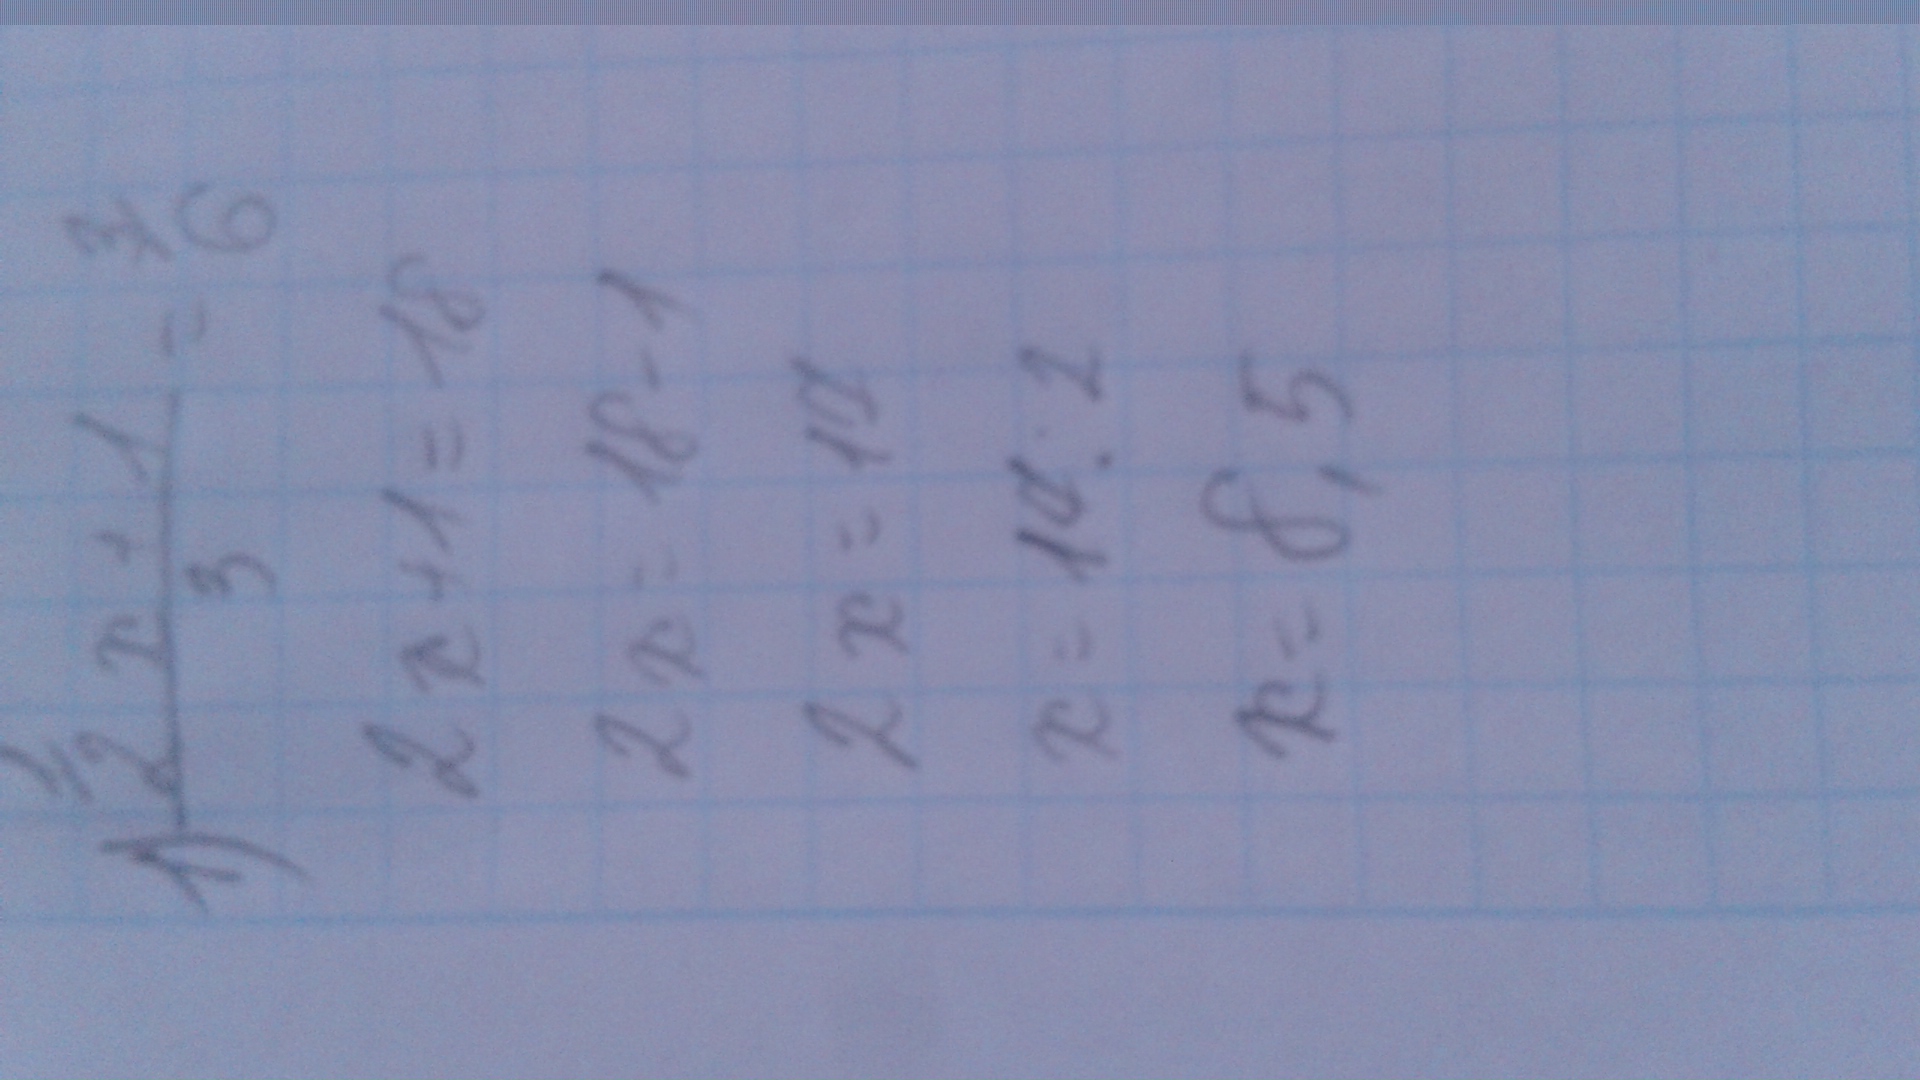 1) (2x+1)/3 = 6
2x+1=18
2x=18-1
2x=17
x=17:2
x=8,5